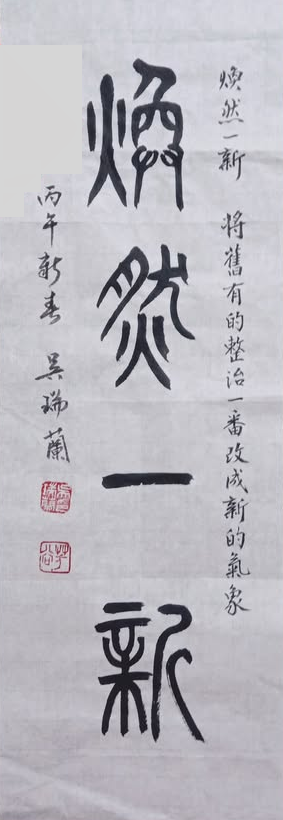 煥然一新 將舊有的整治一番改成新的氣象
煥然一新
丙午新春 吳瑞蘭